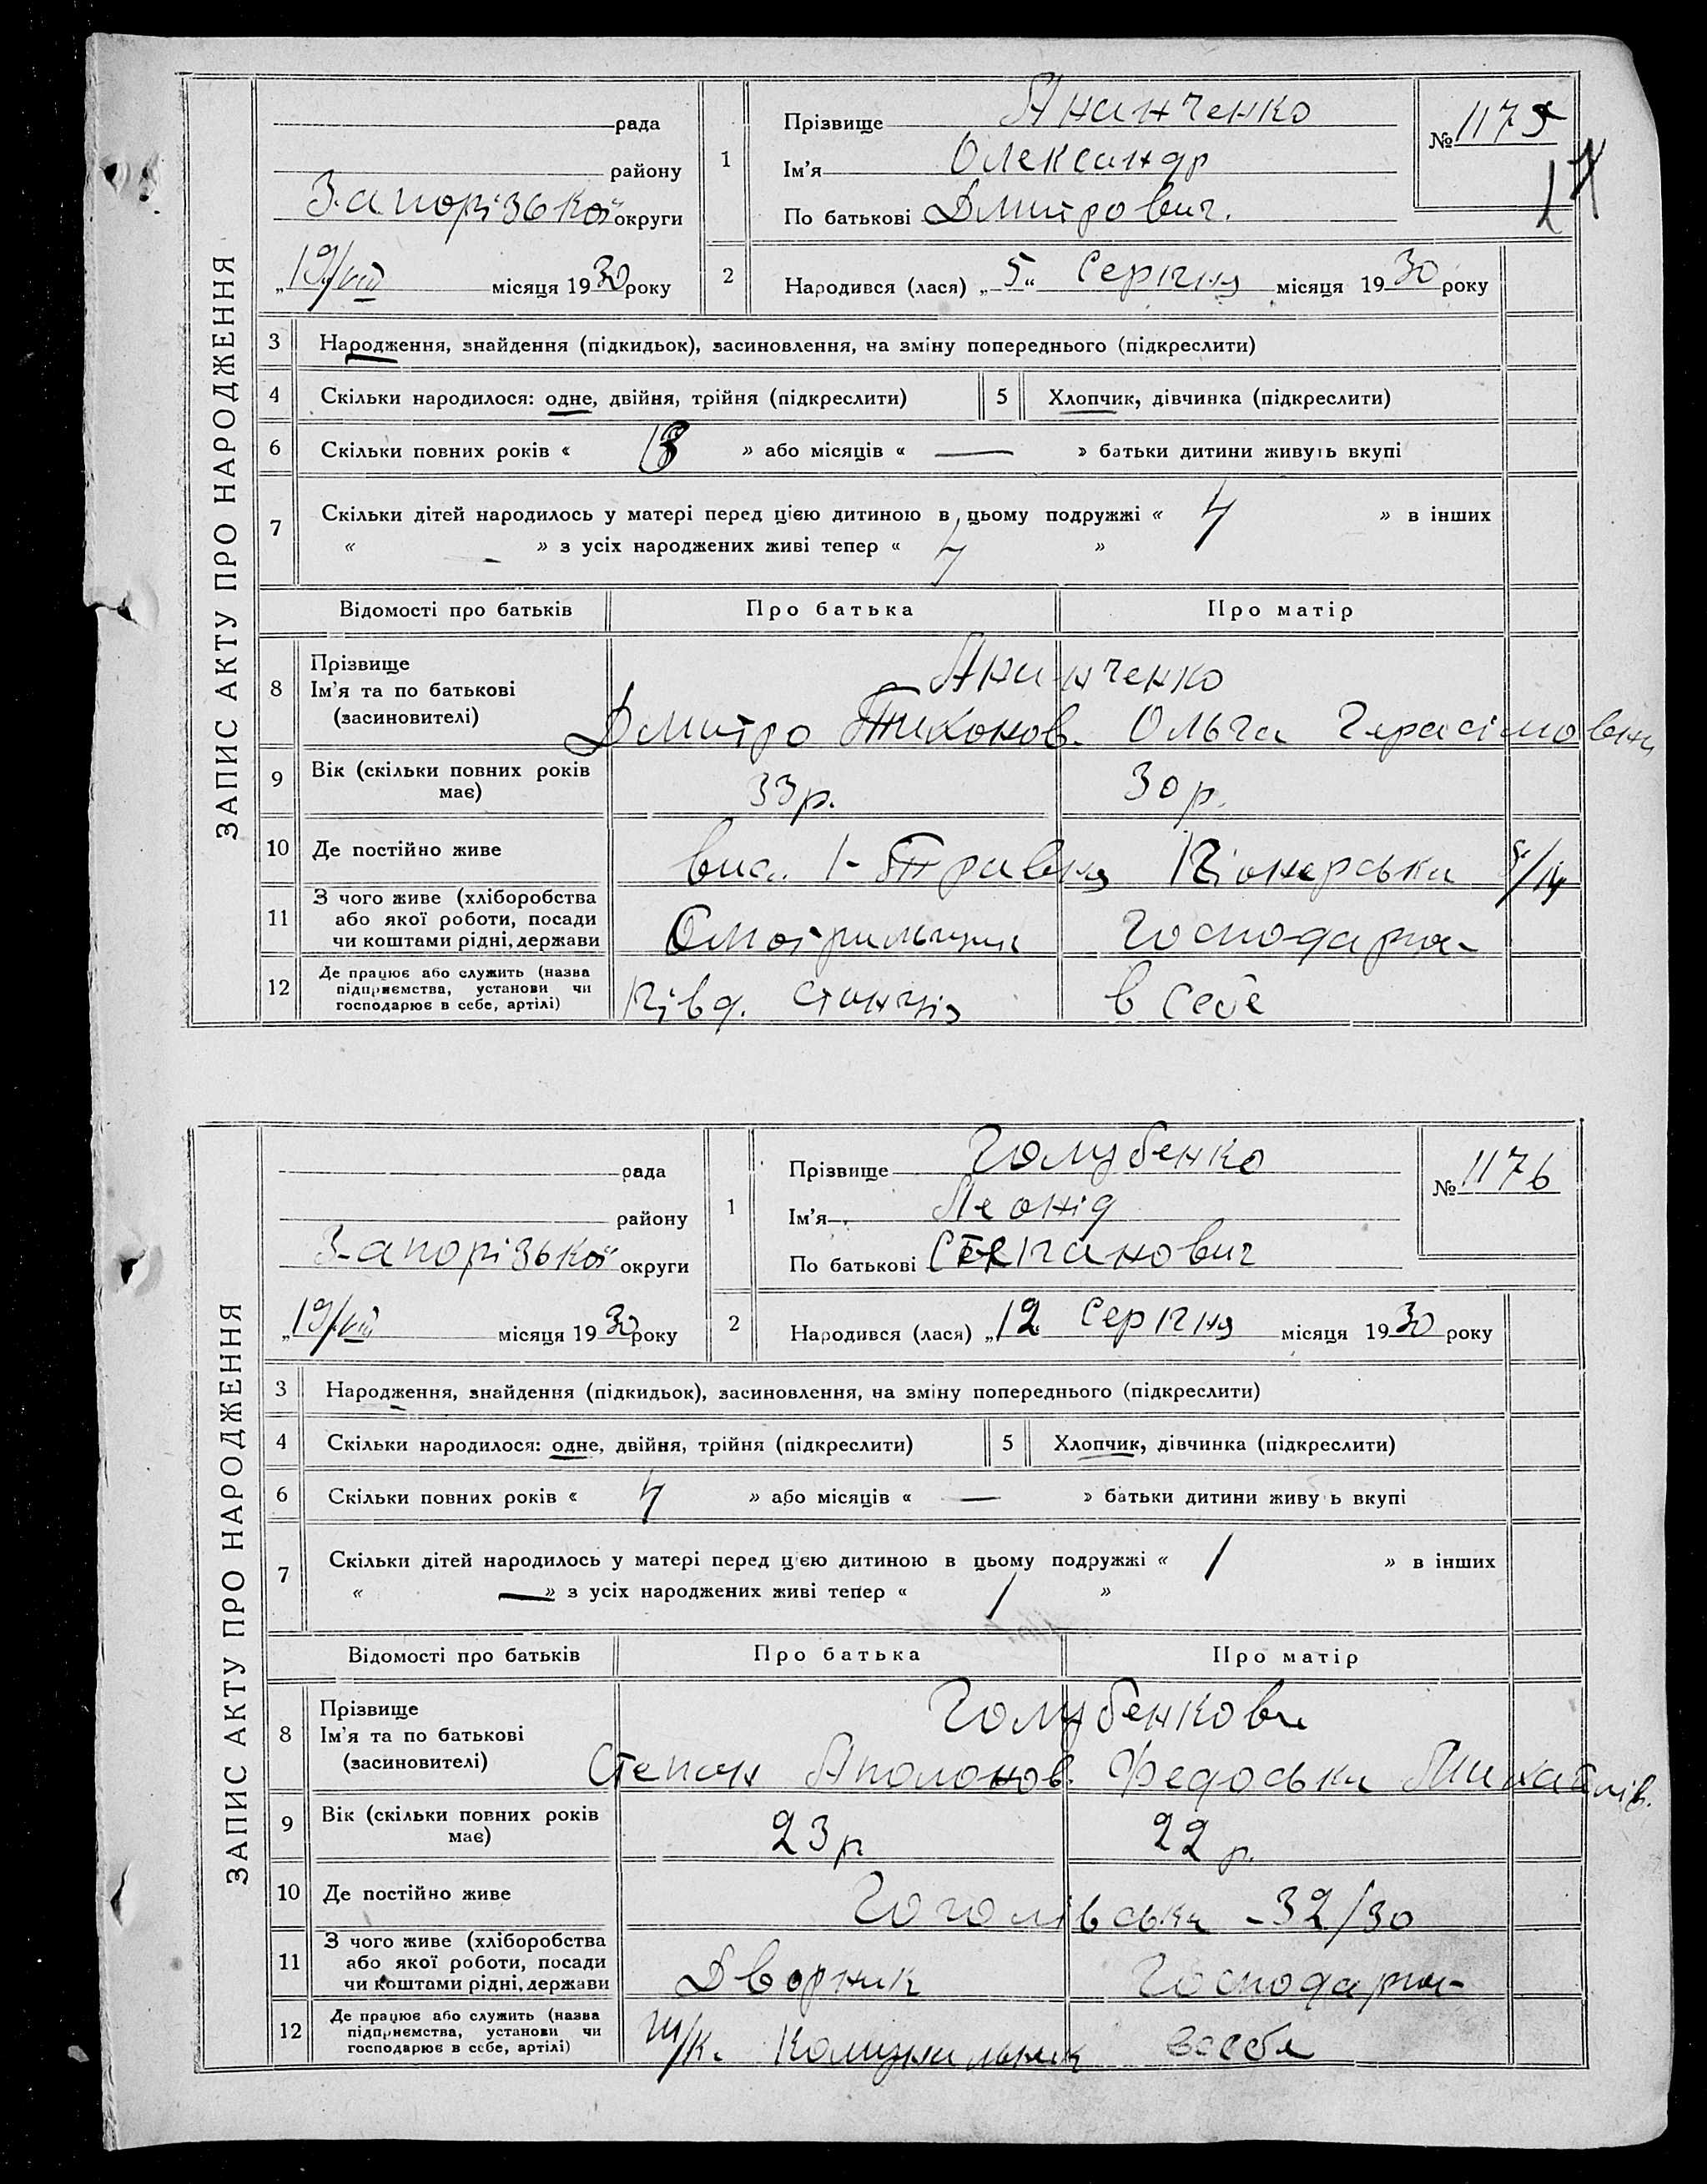 ЗАПИС АКТУ ПРО НАРОДЖЕННЯ
рада
району
Запорізької округи
„19/VIII місяця 1930 року
1
Прізвище Ананченко
Ім'я Олександр
По батькові Дмитрович.
№ 1175
17
2 Народився (лася) „5“ Серпня місяця 1930 року
3 Народження, знайдення (підкидьок), засиновлення, на зміну попереднього (підкреслити)
4 Скільки народилося: одне, двійня, трійня (підкреслити) 5 Хлопчик, дівчинка (підкреслити)
6 Скільки повних років « 13 » або місяців « — » батьки дитини живуть вкупі
7 Скільки дітей народилось у матері перед цією дитиною в цьому подружжі « 4 » в інших
« – » з усіх народжених живі тепер « 4 »
Відомості про батьків Про батька Про матір
8 Прізвище Ананченко
Ім'я та по батькові
(засиновителі)
Дмитро Тихонов. Ольга Герасімовна
9 Вік (скільки повних років має) 33р. 30р.
10 Де постійно живе вис. 1-Травня Піонерська 5/14
11 З чого живе (хліборобства
або якої роботи, посади
чи коштами рідні, держави
Смотрильщик Господарка-
12 Де працює або служить (назва
підприємства, установи чи
господарює в себе, артілі)
Півд. станція в себе
ЗАПИС АКТУ ПРО НАРОДЖЕННЯ
рада
району
Запорізької округи
„19/VIII місяця 1930 року
1
Прізвище Голубенко
Ім'я Леонід
По батькові Степанович
№ 1176
2 Народився (лася) „12“ Серпня місяця 1930 року
3 Народження, знайдення (підкидьок), засиновлення, на зміну попереднього (підкреслити)
4 Скільки народилося: одне, двійня, трійня (підкреслити) 5 Хлопчик, дівчинка (підкреслити)
6 Скільки повних років « 4 » або місяців « — » батьки дитини живу ь вкупі
7 Скільки дітей народилось у матері перед цією дитиною в цьому подружжі « 1 » в інших
« — » з усіх народжених живі тепер « 1 »
Відомості про батьків Про батька Про матір
8 Прізвище Голубенкови
Ім'я та по батькові
(засиновителі)
Степан Аполонов. Федоська Михайлів.
9 Вік (скільки повних років має) 23р 22 р.
10 Де постійно живе Гоголівська - 32/30
11 З чого живе (хліборобства
або якої роботи, посади
чи коштами рідні, держави
Дворник Господарка-
12 Де працює або служить (назва
підприємства, установи чи
господарює в себе, артілі)
Ж/к. Комунальник в себе